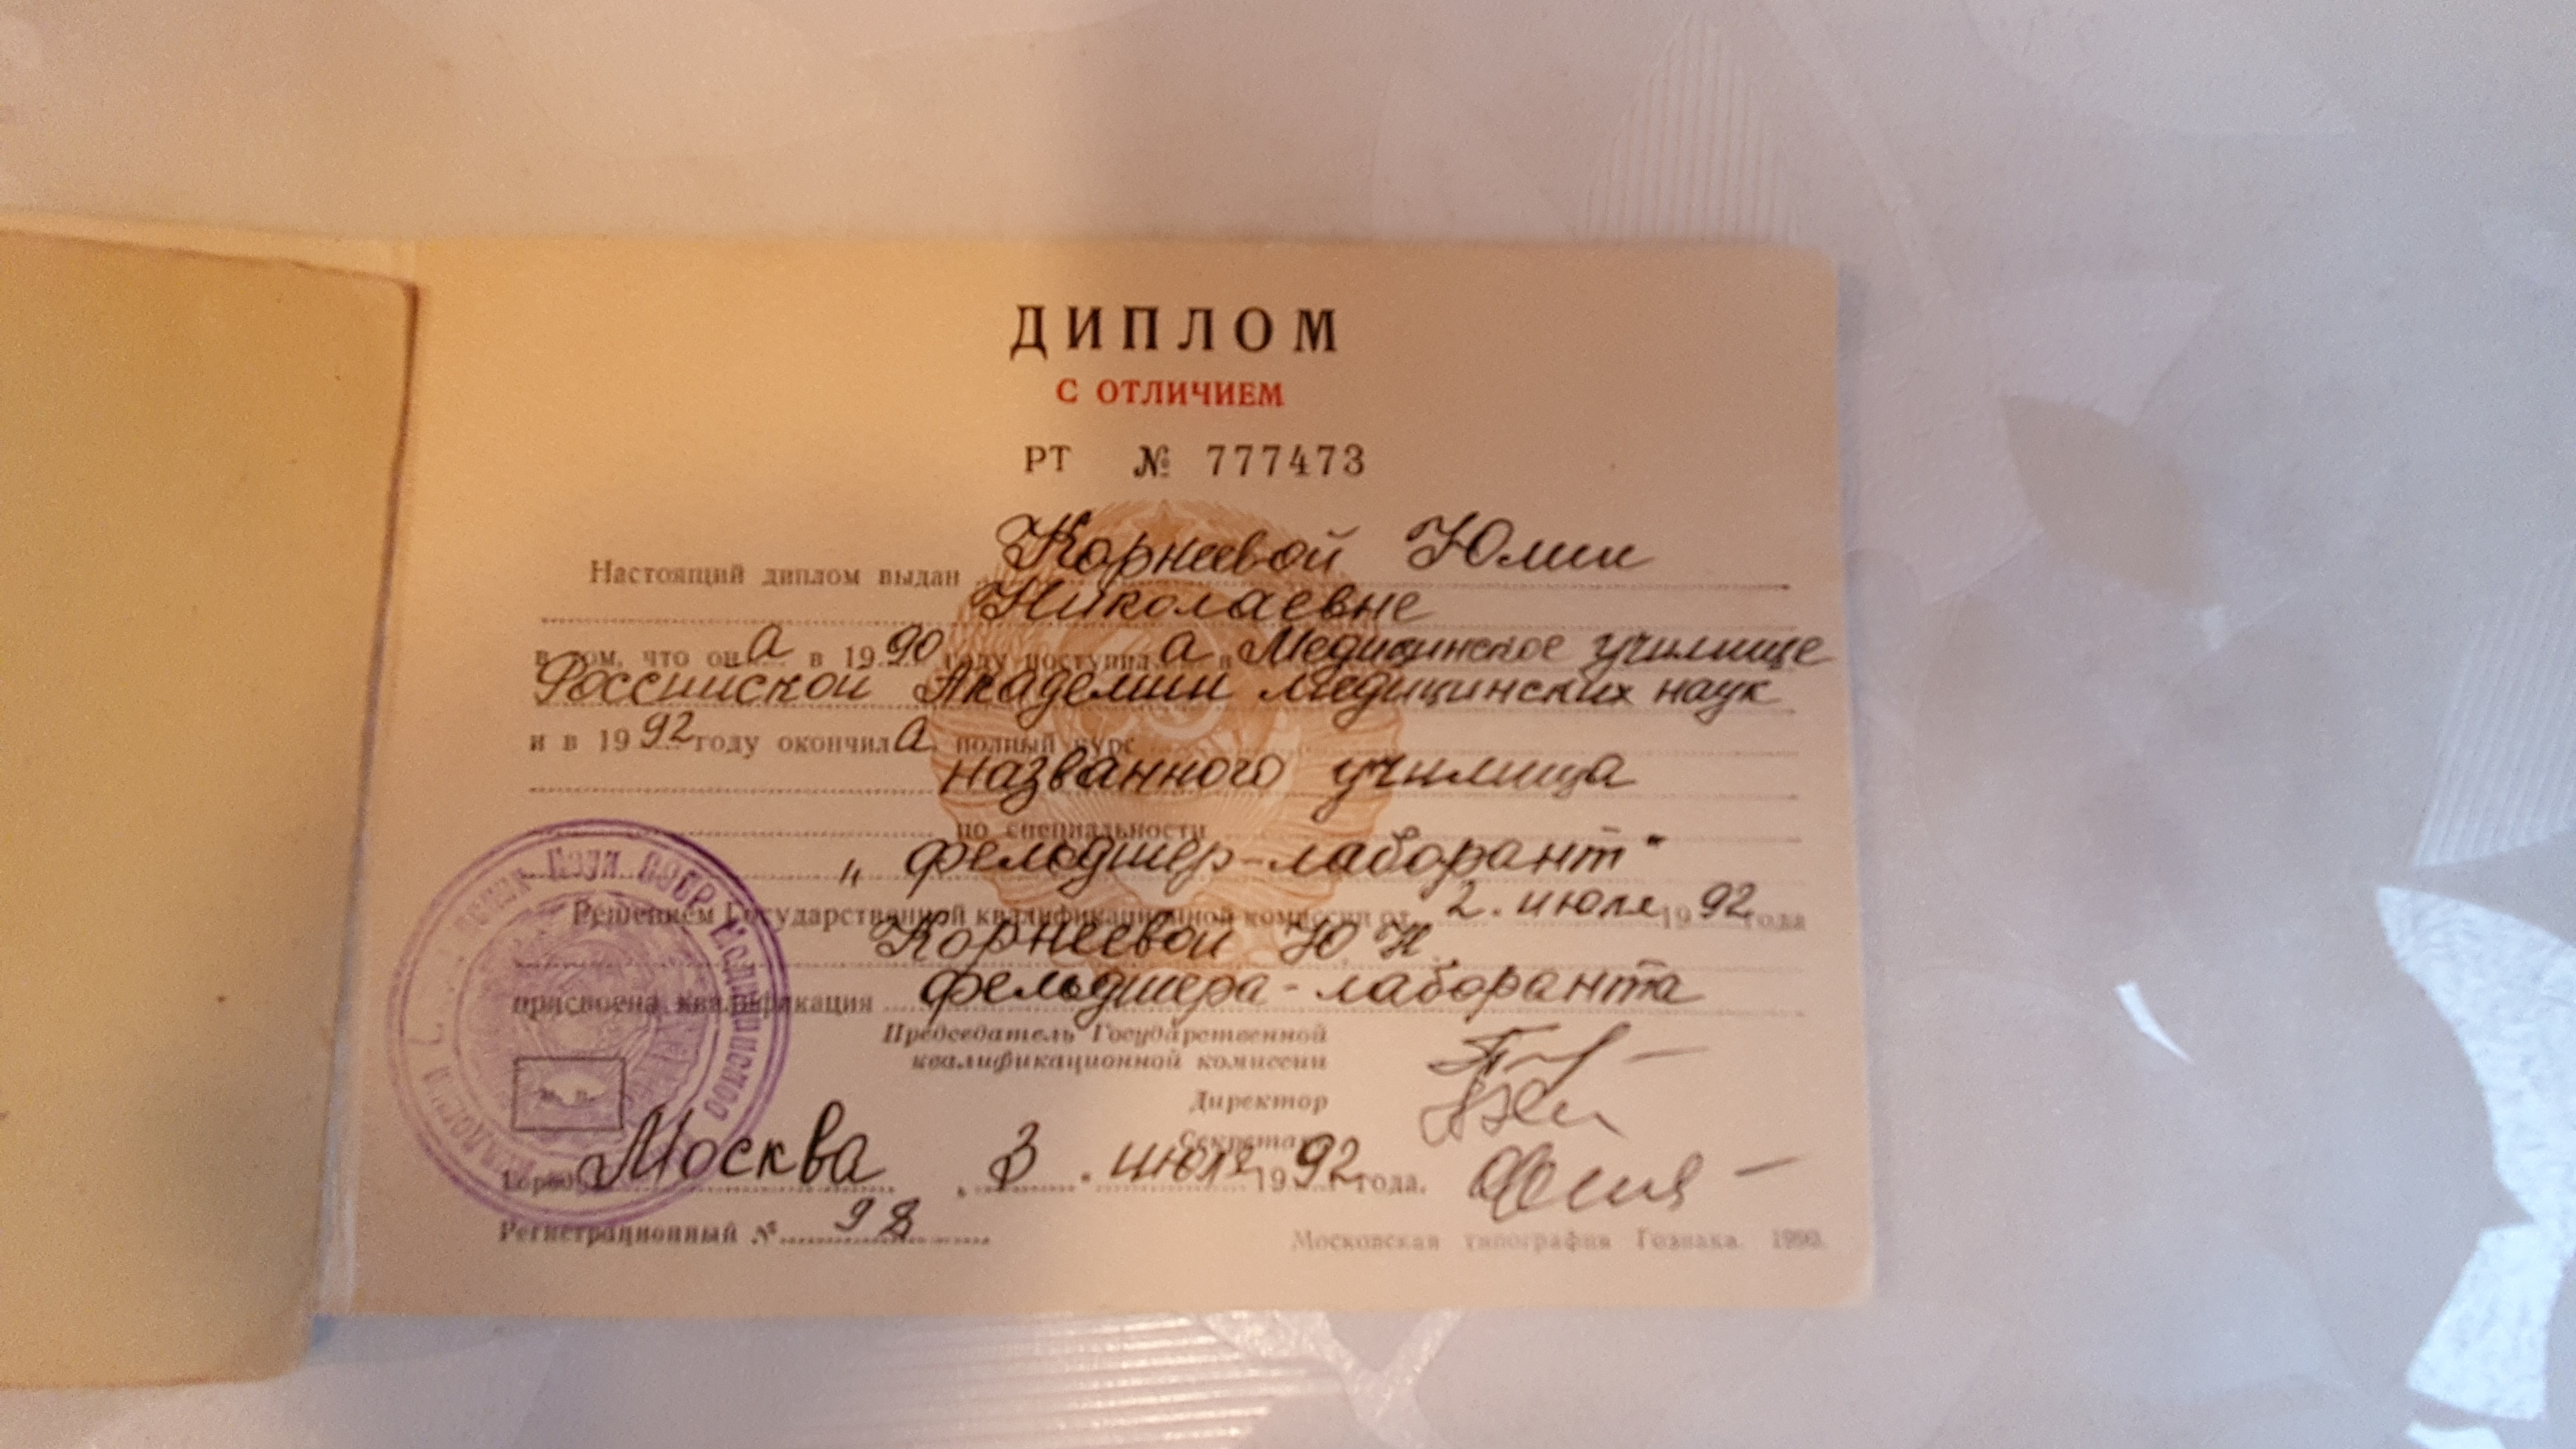 ДИПЛОМ
С ОТЛИЧИЕМ
РТ № 777473
Настоящий диплом выдан Корнеевой Юлии
Николаевне
в том, что она в 1990 году поступила в Медицинское училище
Российской Академии медицинских наук
и в 1992 году окончила полный курс
названного училища
по специальности
„фельдшер-лаборант"
Решением Государственной квалификационной комиссии от 2. июля 1992 года
Корнеевой Ю. Н.
присвоена квалификация фельдшера-лаборанта
Председатель Государственной
квалификационной комиссии
Директор
Секретарь
Город Москва „ 3 " июля 1992 года.
Регистрационный № 98
Московская типография Гознака. 1990.